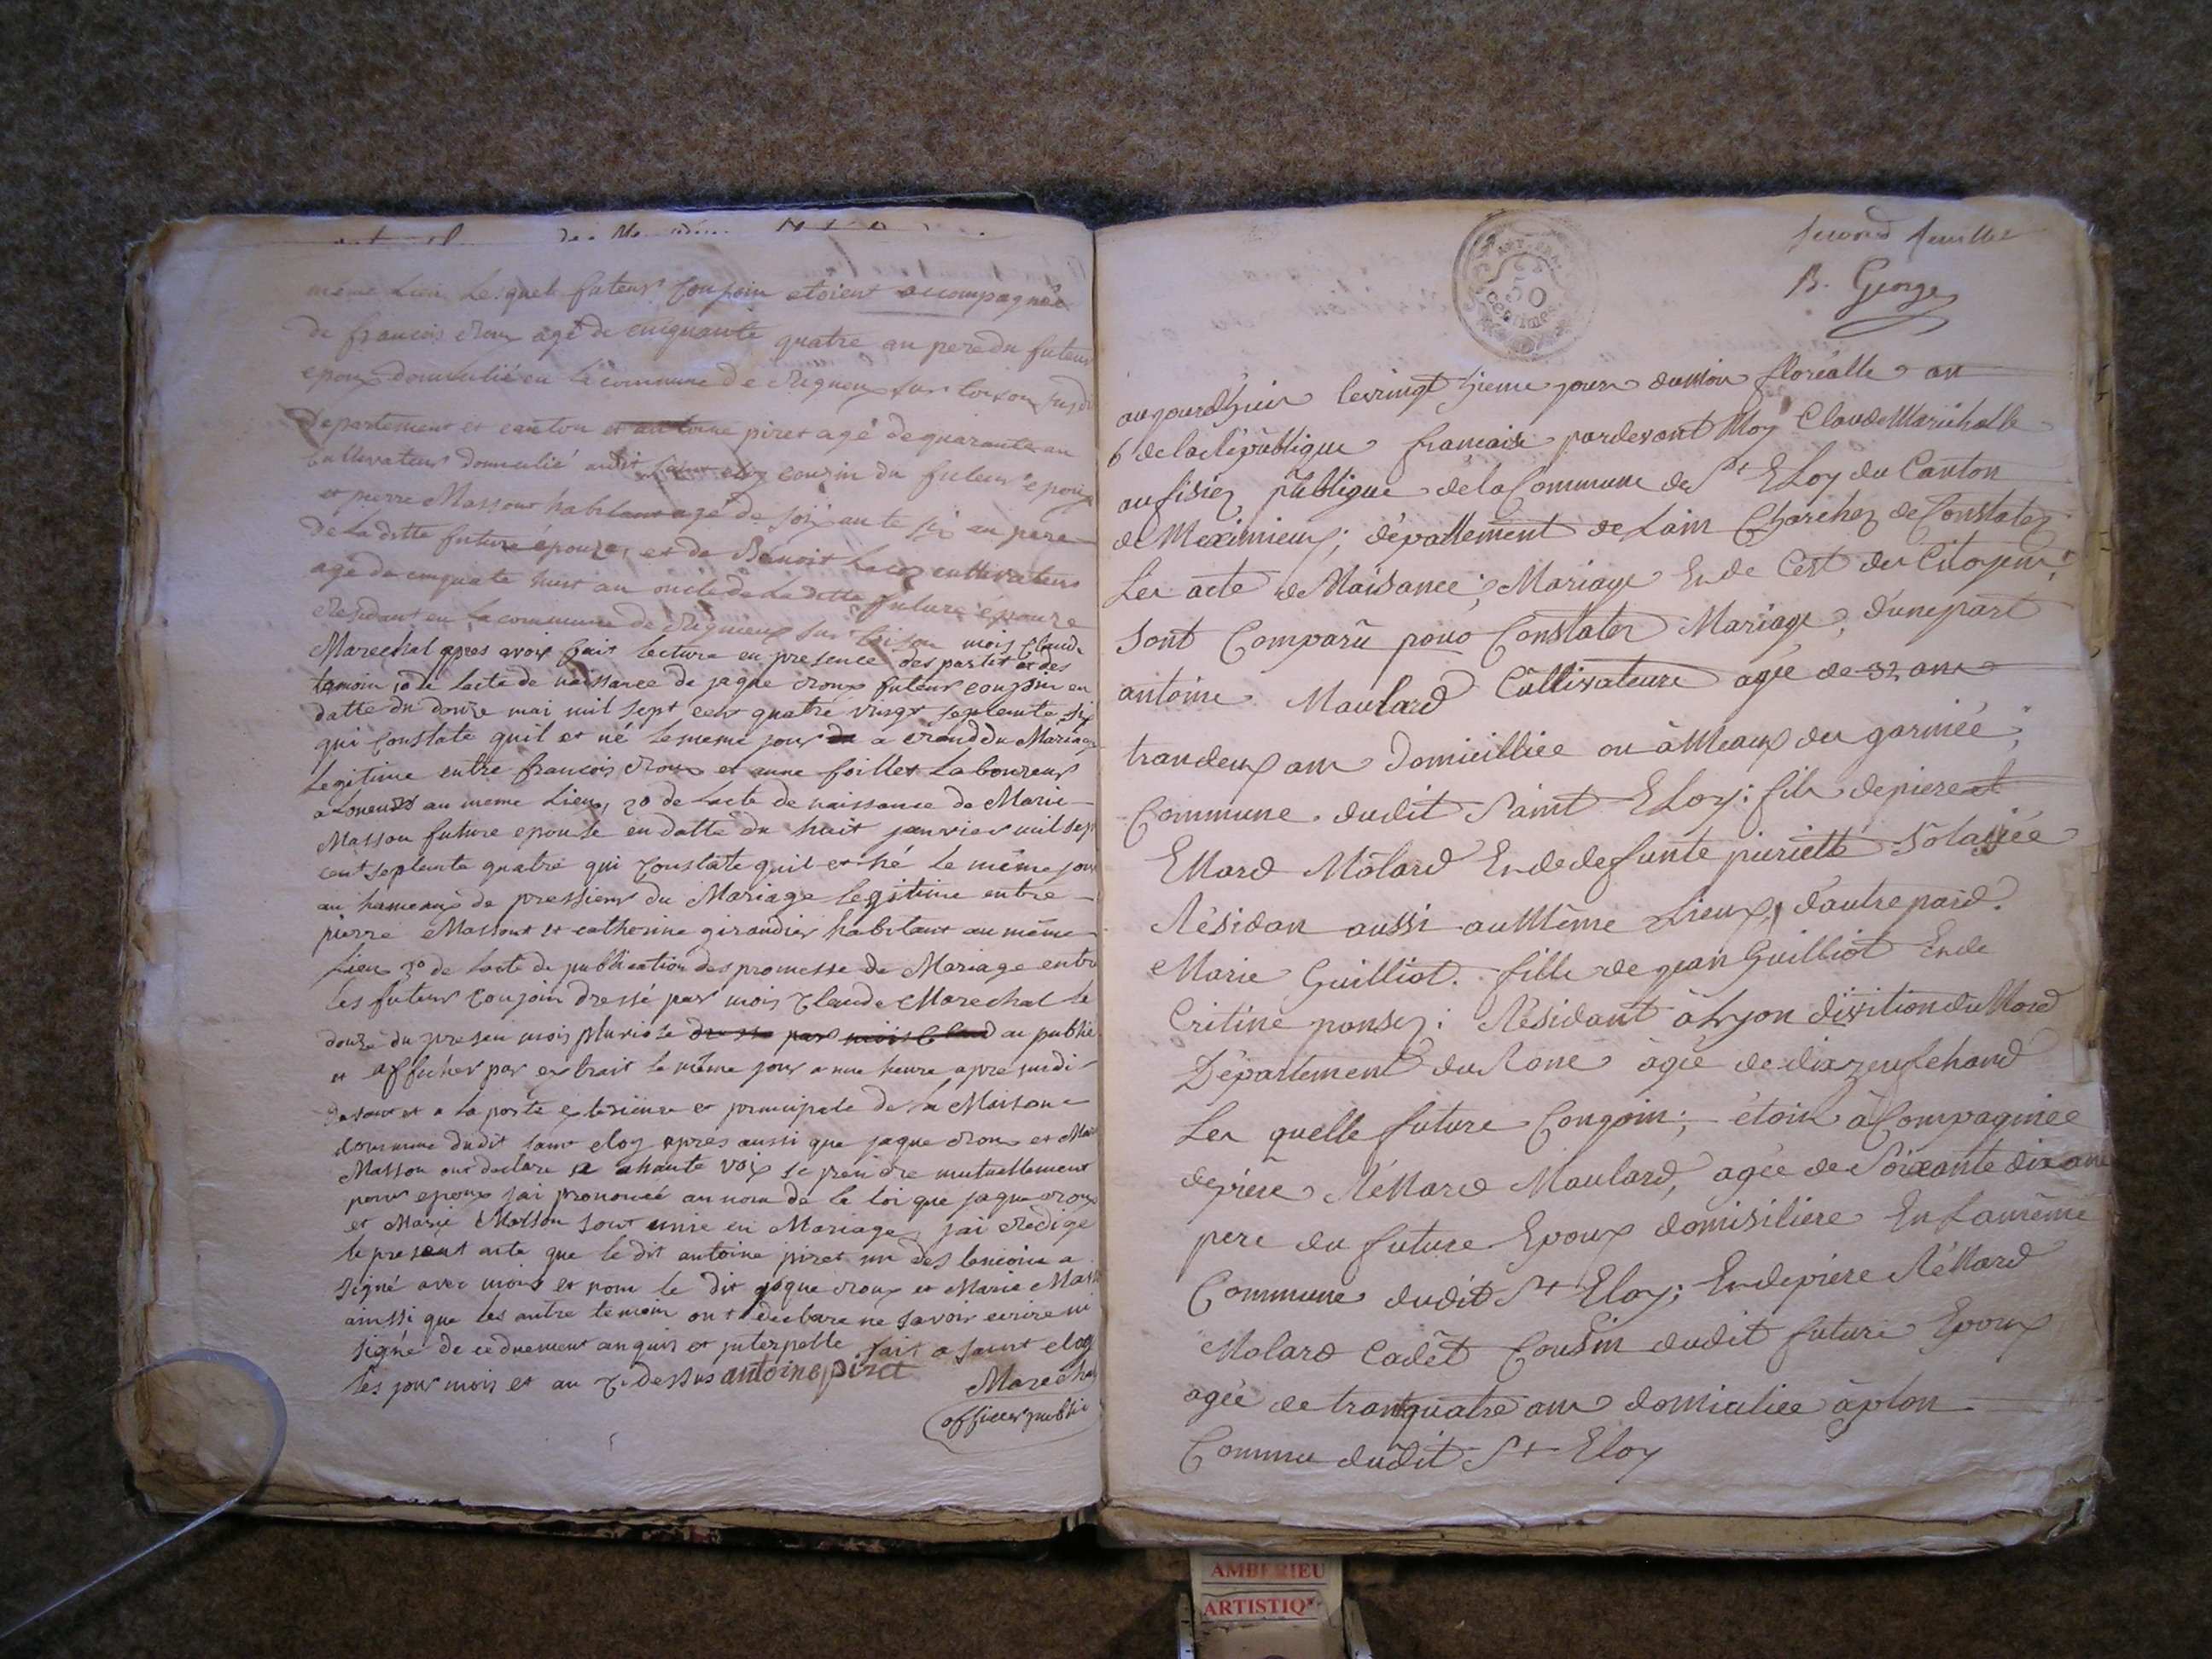 même Lieu Lesquels futeur conjoin etoient accompagnée
de francois Roux agé de cinquante quatre an pere du futeur
epoux domicilié en la commune de Rigneux sur toison susdit
departement et canton et antoine piret agé de quarante an
Cultivateur domicilié audit saint eloy cousin du futeur epoux
et pierre Massont habitant agé de soixante six an pere
de La ditte future épouze, et de Benoit cultivateur
agé de cinquate huit an oncle de La ditte future épouze
Residant en la commune de Rignieux sur toison mois Claude
Marechal apres avoir fait lecture en presence des partit et des
temoin 1o de lacte de naissance de jaque Roux futeur conjoin en
datte du douze mai mil sept cent quatre vingt septente six
qui constate quil et né le meme jour du Mariage
Legitime entre francois Roux et anne foillet Laboureur
au meme Lieu, 2o de Lacte de naissance de Marie
Masson future epouse en datte du huit janvier mil sept
cent septente quatre qui constate quil et né le même jour
au hameaux de pressieux du Mariage legitime entre
pierre Massont et catherine giraudier habitant au même
Lieu 3o de lacte de publication des promesse de Mariage entre
les futeur conjoin dressé par mois Claude Marechal le
douze du presen mois pluviose dresse par mois Claud au publié
et afficher par extrait le même jour a une heure apre midi
devant et a la porte exterieure et principale de la Maison
commune dudit saint eloy apres aussi que jaque Roux et Marie
Masson ont declare a ahaute voix se prendre mutuellement
pour epoux jai prononcé au nom de la loi que jaque Roux
et Marie Masson sont unie en Mariage, jai Redigé
le present acte que le dit antoine piret un des temoins a
signé avec mois et nom le dit jaque Roux et Marie Masson
ainssi que les autre temoin ont declare ne savoir ecrire ni
signé de ce duement anquis et jnterpelle fait a saint eloy
les jour mois et an Ci dessus antoine piret
Marechal
officier public
second feuillet
B. George
50
centimes
aujourdhuis le vingt jieme jour du moi floréalle an
6 de la République francaise pardevant Moy Claude Marichalle
aufisiez püblique de la Commune de St Eloy du Canton
de Meximieux; département de Lain Charchez de Constatez
Les acte de Naisance; Mariage En de Cest des Citoyens;
Sont Comparu pour Constater Mariage, dunepart
antoine Maulard Cultivateure agée de 32 ans
trandeux ans domicilliée ou âMeaux des garniéé;
Commune dudit Saint Eloy: fils de piere et
EMard Mölard En de defunte pieriette Solassée
Résidan aussi auMême Lieux, dautre paid.
Marie Guilliot. fille de jean Guilliot Ende
Critine ponsez: Résidant à Lyon divition du Nord
Département du Rone agée de diazneufehand
Les quelle future Congoin; étoin àCompaginée
depiere RéMard Maulard, agée de Soixante dix ans
pere du future Epoux domisiliere En La même
Commune dudit St Eloy; En de piere RéMard
Molard Cadêt Cousin dudit future Epoux
agée de trantquatre ans domiciliee àplon
Commu dudit St Eloy
AMBERIEU
ARTISTIQ